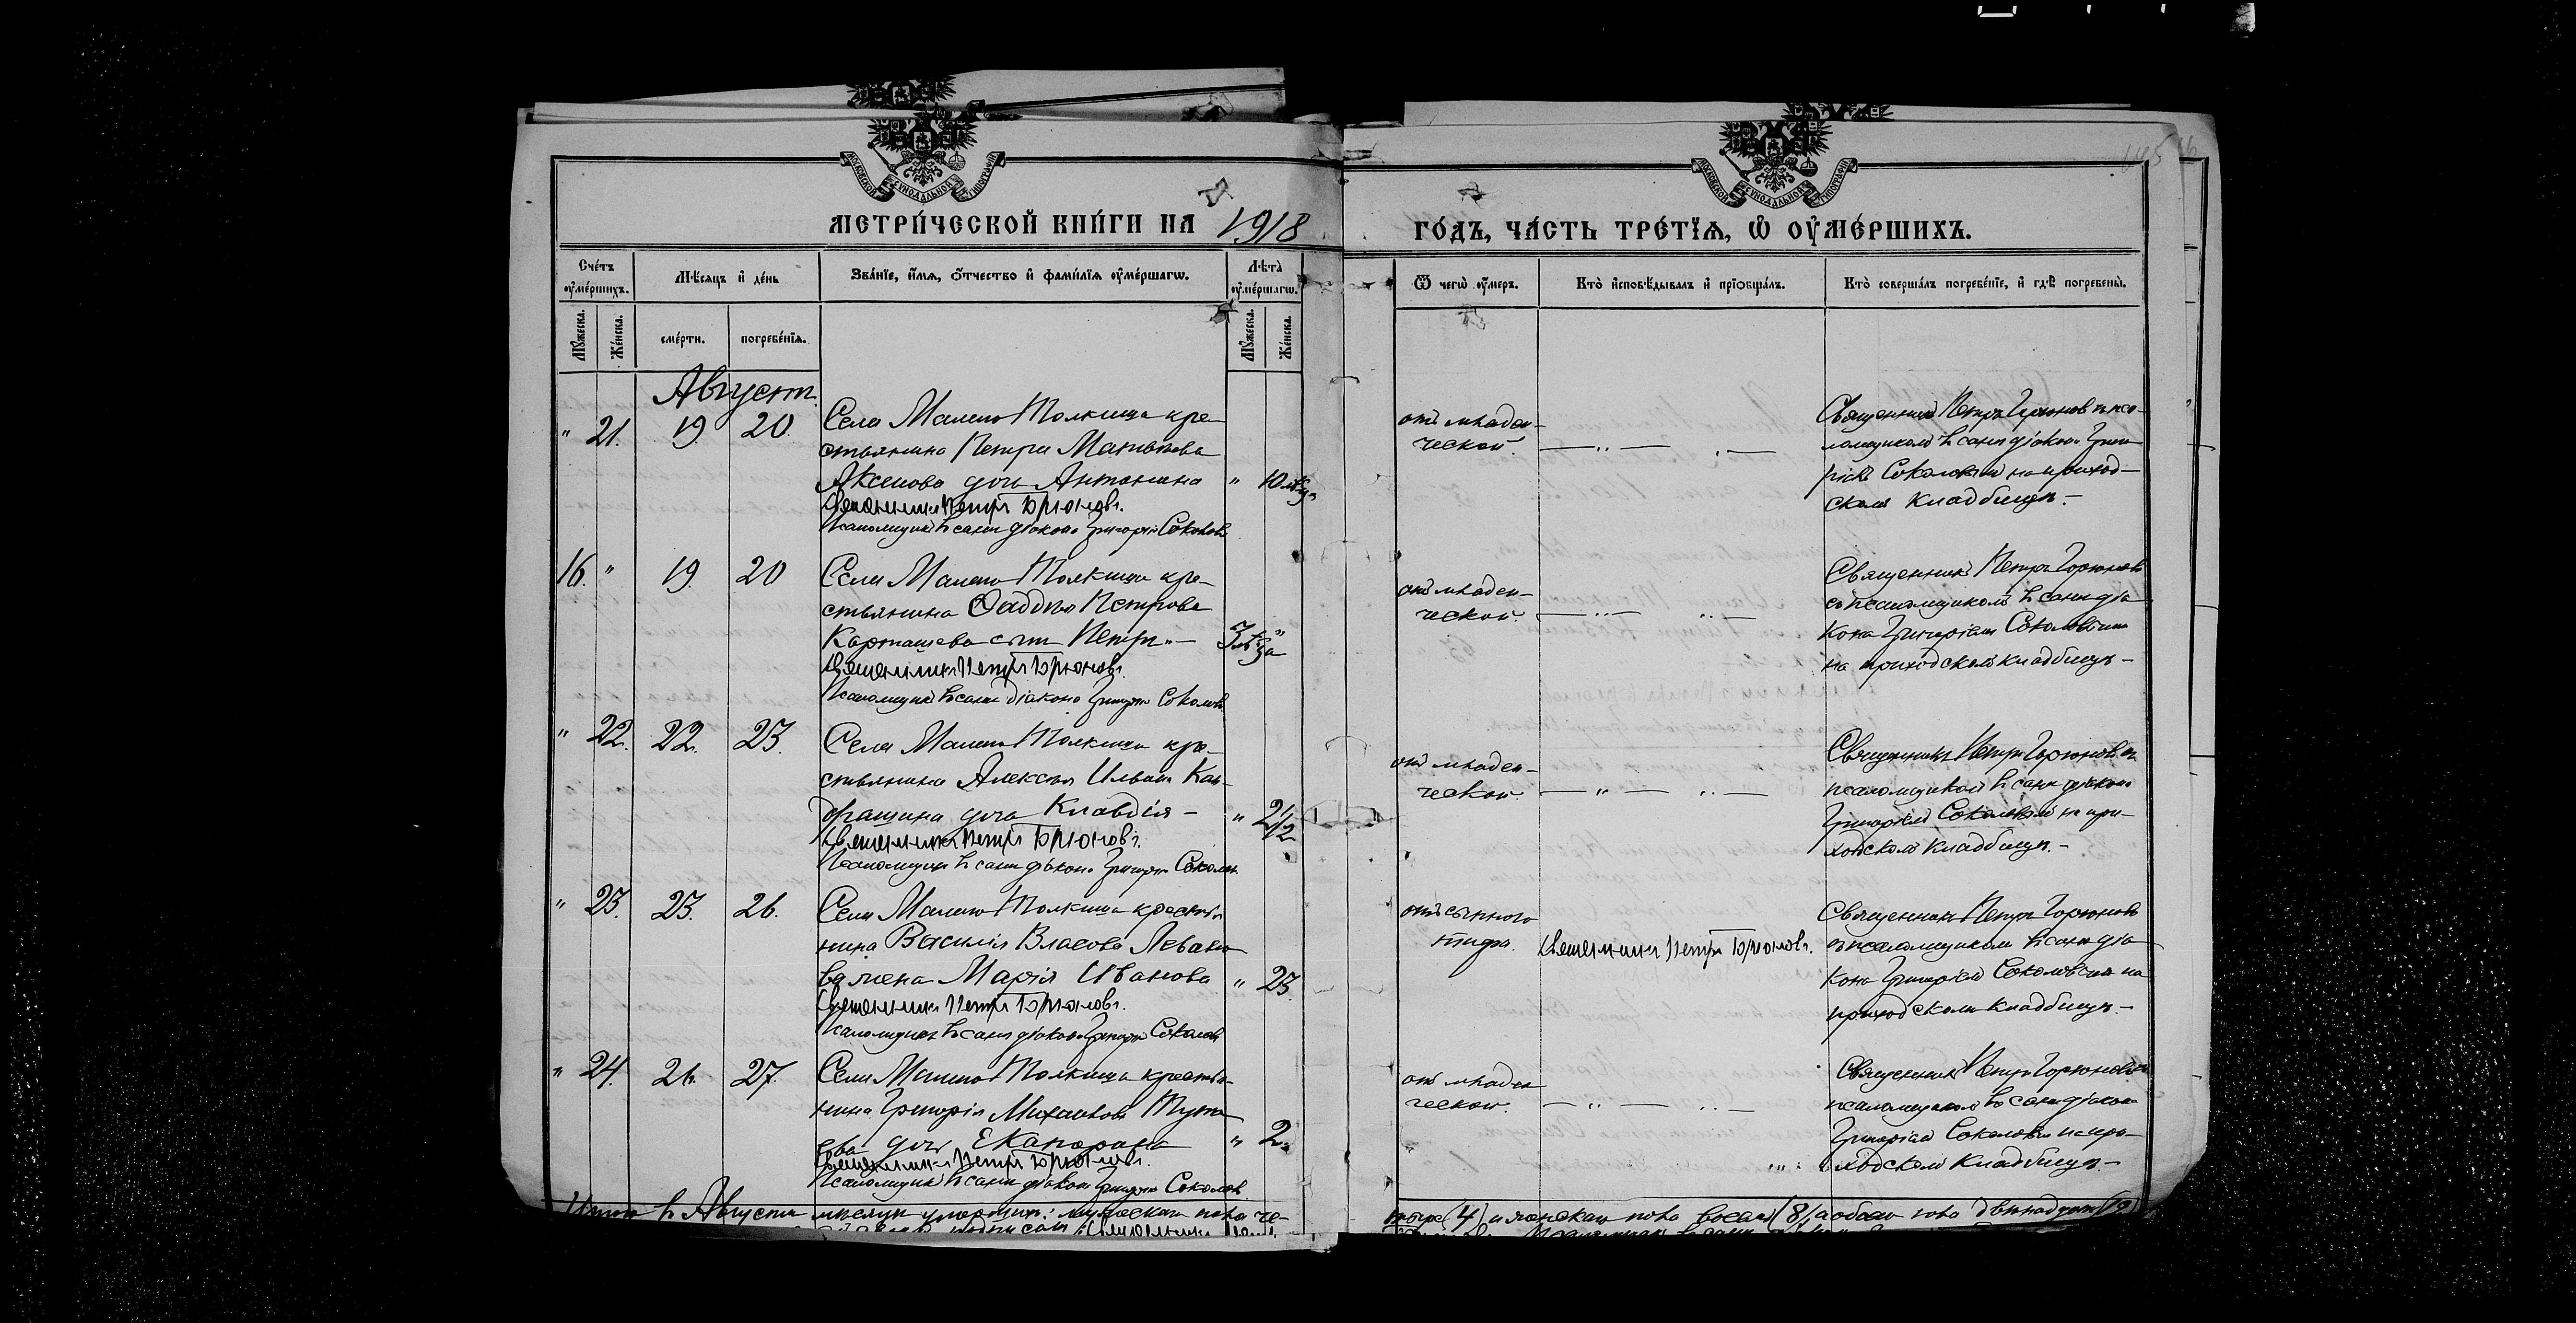 МЕТРИ́ЧЕСКОЙ КНИ́ГИ НА 1918
ГО́ДЪ, ЧА́СТЬ ТРЕ́ТЇѦ, Ѡ҆ ОУ҆МЕ́РШИХЪ.
Сче́тъ оу҆ме́ршихъ.
Мѣ́сѧцъ и҆ де́нь
Зва́нїе, и҆́мѧ, ѻ҆́тчество и҆ фами́лїѧ оу҆ме́ршагѡ.
Лѣ́та оу҆ме́ршагѡ.
Ѿ чегѡ̀ оу҆́меръ.
Кто̀ и҆сповѣ́дывалъ и҆ прїѻбща́лъ.
Кто̀ соверша́лъ погребе́нїе, и҆ гдѣ̀ погребены̀.
Мꙋ́жеска.
Же́нска.
сме́рти.
погребе́нїѧ.
Мꙋ́жеска.
Же́нска.
Август.
" 21. 19 20. Села Малого Толкиша кре-
стьянина Петра Матвѣева
Аксенова дочь Антонина " 10 мѣс.
Священникъ Петръ Горюновъ.
Псаломщикъ въ санѣ діакона Григорій Соколовъ
отъ младен-
ческой.
Священникъ Петръ Горюнов с псо-
ломщиком в санѣ діакона Григо-
ріем Соколовым на приход-
ском кладбищѣ.-
16. " 19. 20 Села Малого Толкиша кре-
стьянина Ѳаддѣя Петрова
Карташева сын Петр.- 3 мѣсяца "
Священникъ Петръ Горюновъ.
Псаломщикъ въ санѣ діакона Григорій Соколовъ
отъ младен-
ческой.
Священникъ Петръ Горюновъ
съ псаломщиком в санѣ діа-
кона Григоріем Соколовым
на приходском кладбищѣ-
" 22. 22. 23. Села Малого Толкиша кре-
стьянина Алексѣя Ильина Кан-
драшина дочь Клавдія- " 2 1/2
Священникъ Петръ Горюновъ.
Псаломщик в санѣ діакона Григорій Соколов
отъ младен-
ческой.
Священникъ Петръ Горюнов съ
псаломщиком в санѣ діакона
Григоріем Соколовым на при-
ходском кладбищѣ.-
" 23. 23. 26. Села Малого Толкиша крестья-
нина Василія Власова Левано-
ва жена Марія Иванова " 23.
Священникъ Петръ Горюновъ.
Псаломщикъ в санѣ діакона Григорій Соколовъ
отъ сыпного
тифа. Священникъ Петръ Горюновъ.
Священникъ Петръ Горюновъ
съ псаломщиком в санѣ діа-
кона Григоріем Соколовым на
приходском кладбищѣ.-
" 24. 26. 27. Села Малого Толкиша крестья-
нина Григорія Михайлова
ева дочь Екатерина " 2.
Священникъ Петръ Горюновъ.
Псаломщикъ в санѣ діакона Григорій Соколов
отъ младен-
ческой.
Священникъ Петръ Горюновъ съ
псаломщиком в санѣ діакона
Григоріем Соколовым на при-
ходском кладбищѣ-
Итого в Августѣ мѣсяцѣ умерших: мужескаго пола че-
тыре (4) и женскаго пола восемь (8) а обоего пола двѣнадцать (12)